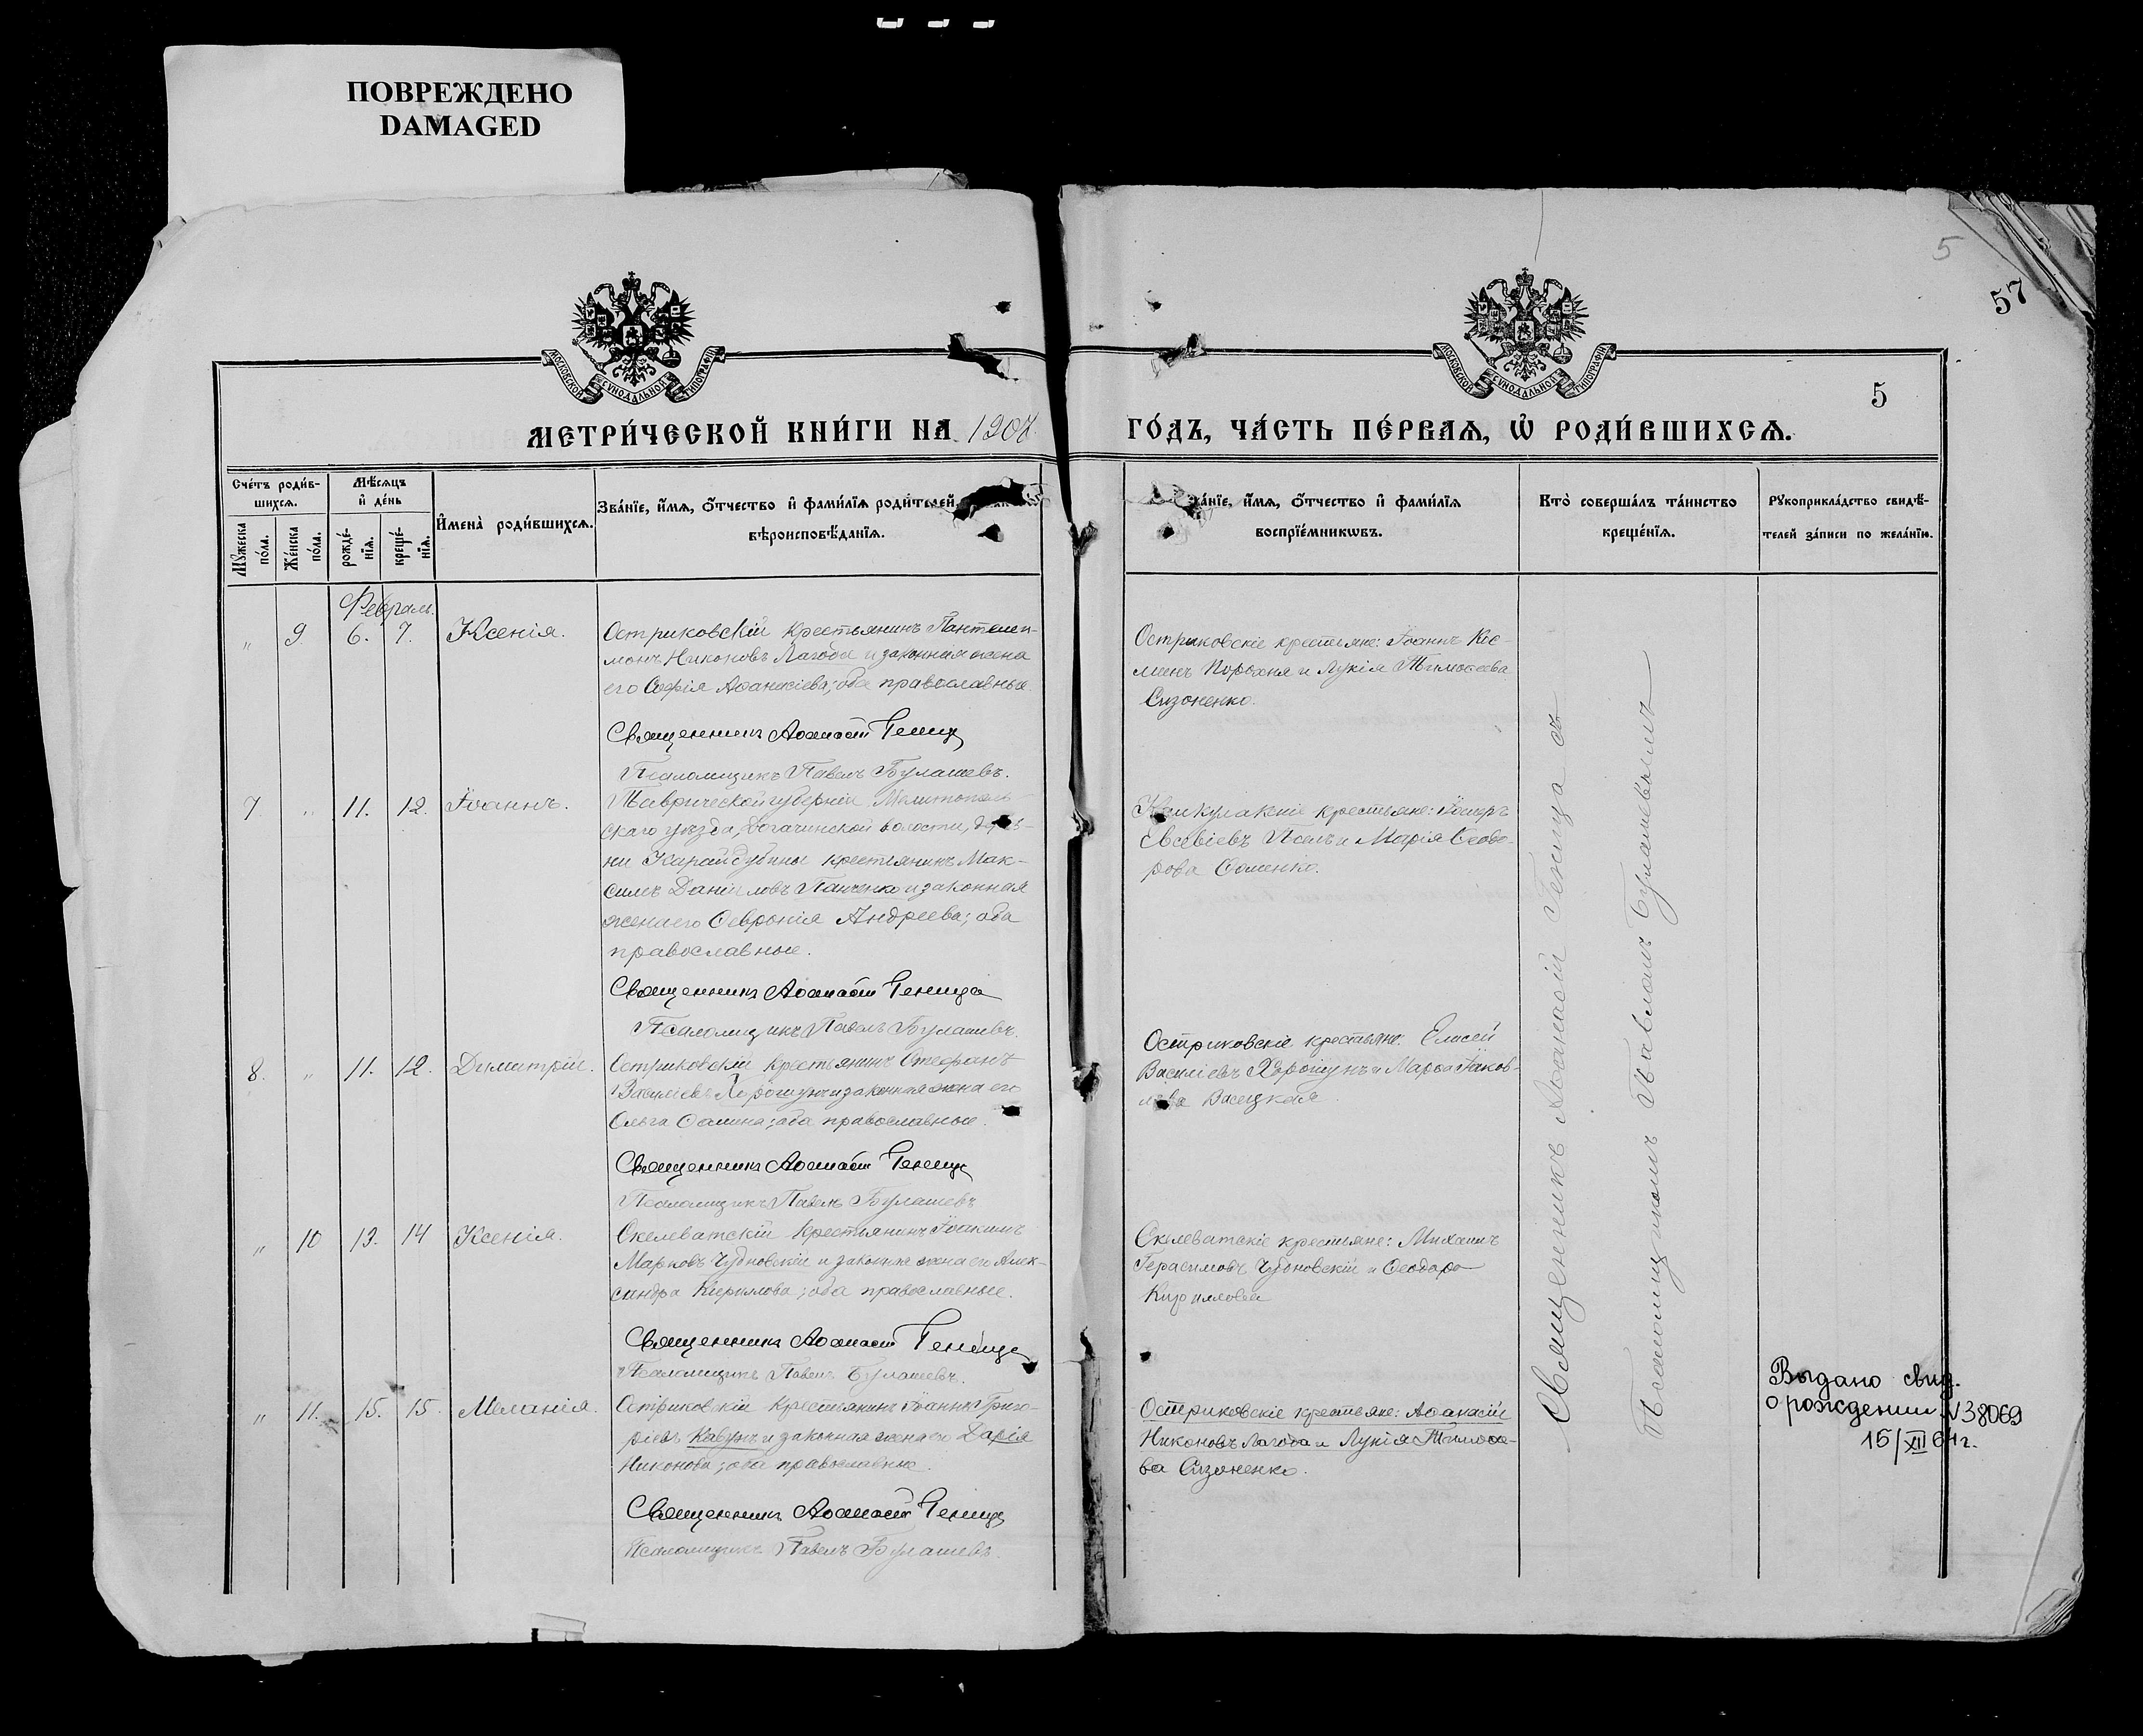 ПОВРЕЖДЕНО
DAMAGED
5
57
МОСКОВСКОЙ СѴНОДАЛЬНОЙ ТИПОГРАФІИ
МОСКОВСКОЙ СѴНОДАЛЬНОЙ ТИПОГРАФІИ
5
МЕТРИ́ЧЕСКОЙ КНИ́ГИ НА 1908
ГО́ДЪ, ЧА́СТЬ ПЕ́РВАѦ, Ѡ҆ РОДИ́ВШИХСѦ.
Сче́тъ роди́в-
шихсѧ.
Мꙋжеска по́ла.
Же́нска по́ла.
Мѣ́сѧцъ
и҆ де́нь
рожде́-
нїѧ.
креще́-
нїѧ.
И҆мена̀ роди́вшихсѧ.
Зва́нїе, и҆́мѧ, ѻ҆́тчество и҆ фами́лїѧ роди́телей,
вѣроисповѣ́данїѧ.
Зва́нїе, и҆́мѧ, ѻ҆́тчество и҆ фами́лїѧ
воспрїе́мникѡвъ.
Кто̀ соверша́лъ та́инство
креще́нїѧ.
Рꙋкоприкла́дство свидѣ́-
телей за́писи по жела́нїю.
Февраль.
" 9. 6. 7. Ксенія.
Остриковскій крестьянинъ Пантелеи-
монъ Никоновъ Лагода и законная жена
его Софія Аѳанасіева; оба православные
Священникъ Аѳанасій Геница
Псаломщикъ Павелъ Булашевъ.
Остриковскіе крестьяне: Іоаннъ Кос-
минъ Порохня и Лукія Тимоѳеева
Сизоненко.
7 " 11. 12. Іоаннъ.
Таврической губерніи Мелитополь-
скаго уѣзда, волости, дерев-
ни Карайдубины крестьянинъ Мак-
симъ Даніиловъ Панченко и законная
жена его Ѳевронія Андреева; оба
православные.
Священникъ Аѳанасій Геница
Псаломщикъ Павелъ Булашевъ.
крестьяне:
Евсевіевъ и Марія Ѳеодо-
рова
8. " 11. 12. Димитрій.
Остриковскій крестьянинъ Стефанъ
Василіевъ Хорошунъ и законная жена его
Ольга Ѳомина; оба православные.
Священникъ Аѳанасій Геница
Псаломщикъ Павелъ Булашевъ
Остриковскіе крестьяне: Елисей
Василіевъ Хорошунъ и Марѳа Іаков-
лева Васецкая.
" 10 13. 14 Ксенія.
Скелеватскій крестьянинъ Іоакимъ
Марковъ Чубновскій и законная жена его Алек-
сандра Кирилова; оба православные.
Священникъ Аѳанасій Геница
Псаломщикъ Павелъ Булашевъ.
Скелеватскіе крестьяне: Михаилъ
Герасимовъ Чубновскій и Ѳеодора
Кириллова
" 11. 15. 15. Меланія.
Остриковскій крестьянинъ Іоаннъ Григо-
ріевъ Кавунъ и законная жена его Дарія
Никонова; оба православные.
Священникъ Аѳанасій Геница
Псаломщикъ Павелъ Булашевъ.
Остриковскіе крестьяне: Аѳанасій
Никоновъ Лагода и Лукія Тимоѳее-
ва Сизоненко.
Священникъ Аѳанасій Геница съ
Псаломщикомъ Павломъ Булашевымъ
Выдано свид.
о рождении N 38069
15/XII 64 г.